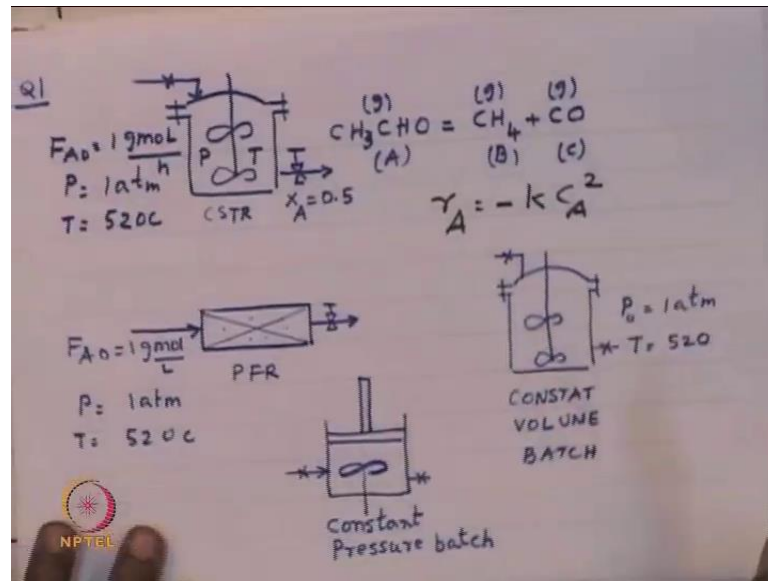 Q1
F_A0 = 1 gmol/h
P: 1atm
T: 520C
P T
CSTR
T
X_A = 0.5
(g) (g) (g)
CH3CHO = CH4 + CO
(A) (B) (C)
r_A = - k C_A^2
F_A0 = 1 gmol/L
P: 1atm
T: 520c
T
PFR
P_0 = 1atm
T= 520
CONSTAT
VOLUME
BATCH
Constant
Pressure batch
NPTEL